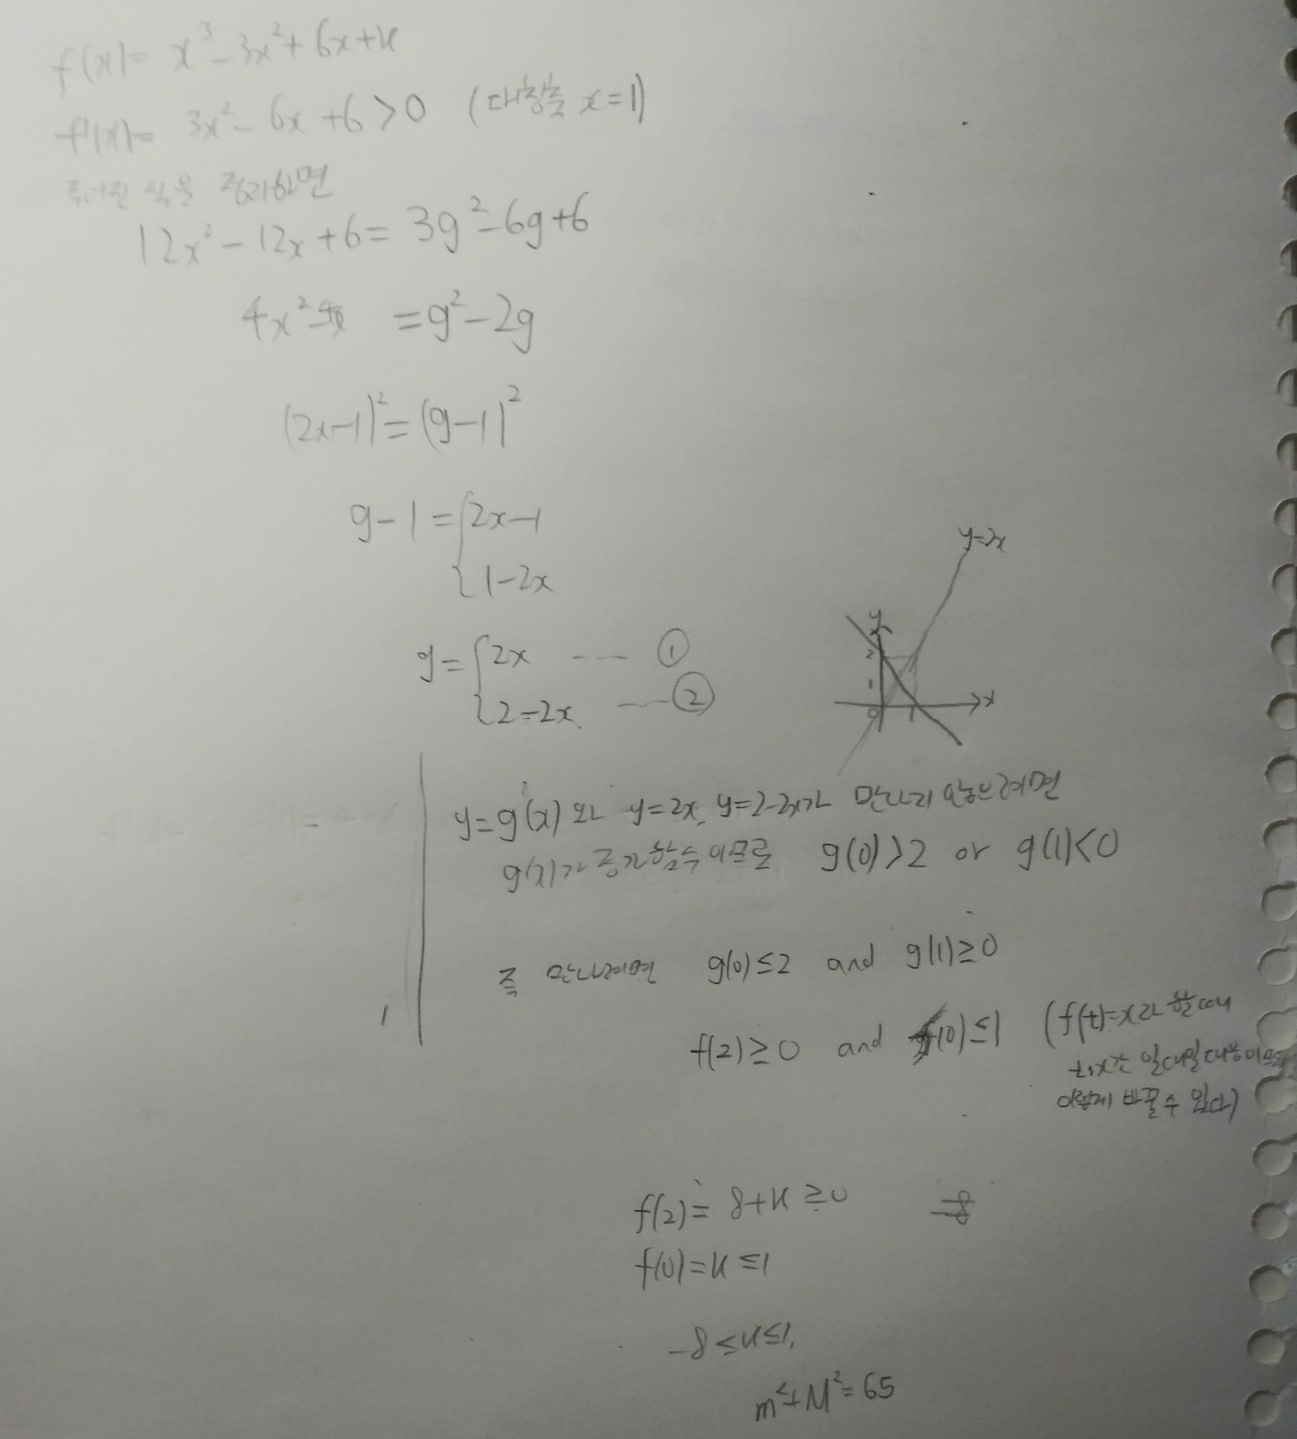 f(x)= x³-3x²+6x+k
f'(x)= 3x²-6x+6>0 (대칭축 x=1)
주어진 식을 정리하면
12x²-12x+6= 3g²-6g+6
4x²-4x =g²-2g
(2x-1)²=(g-1)²
g-1={2x-1
{1-2x
y=2x
g={2x ---- ①
{2-2x ---- ②
y
2
1
0 1 x
y=g(x)와 y=2x, y=2-2x가 만나지 않으려면
g(x)가 증가함수이므로 g(0)>2 or g(1)<0
즉 만나려면 g(0)≤2 and g(1)≥0
f(2)≥0 and f(0)≤1 (f(t)=x라 할때
t,x는 일대일대응이므로
이렇게 바꿀수 있다)
f(2)= 8+k≥0
f(0)=k≤1
-8≤k≤1,
m²+M²=65